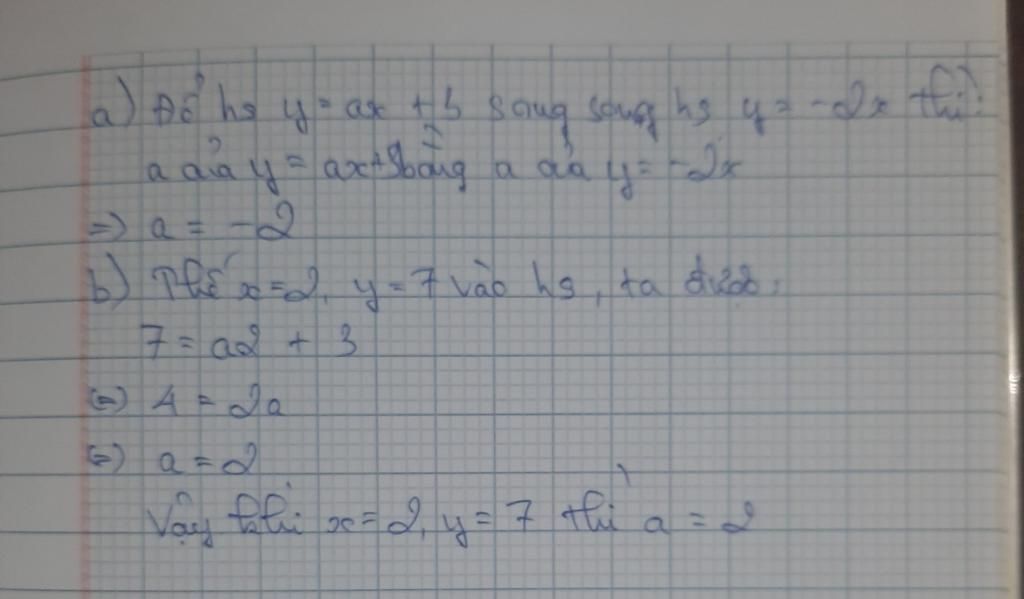 a) Để hs y = ax + 3 song song hs y = -2x thì:
a của y = ax+3 bằng a của y = -2x
=> a = -2
b) Thế x=2, y=7 vào hs, ta được:
7 = a2 + 3
(=) 4 = 2a
(=) a = 2
Vậy khi x=2, y=7 thì a = 2